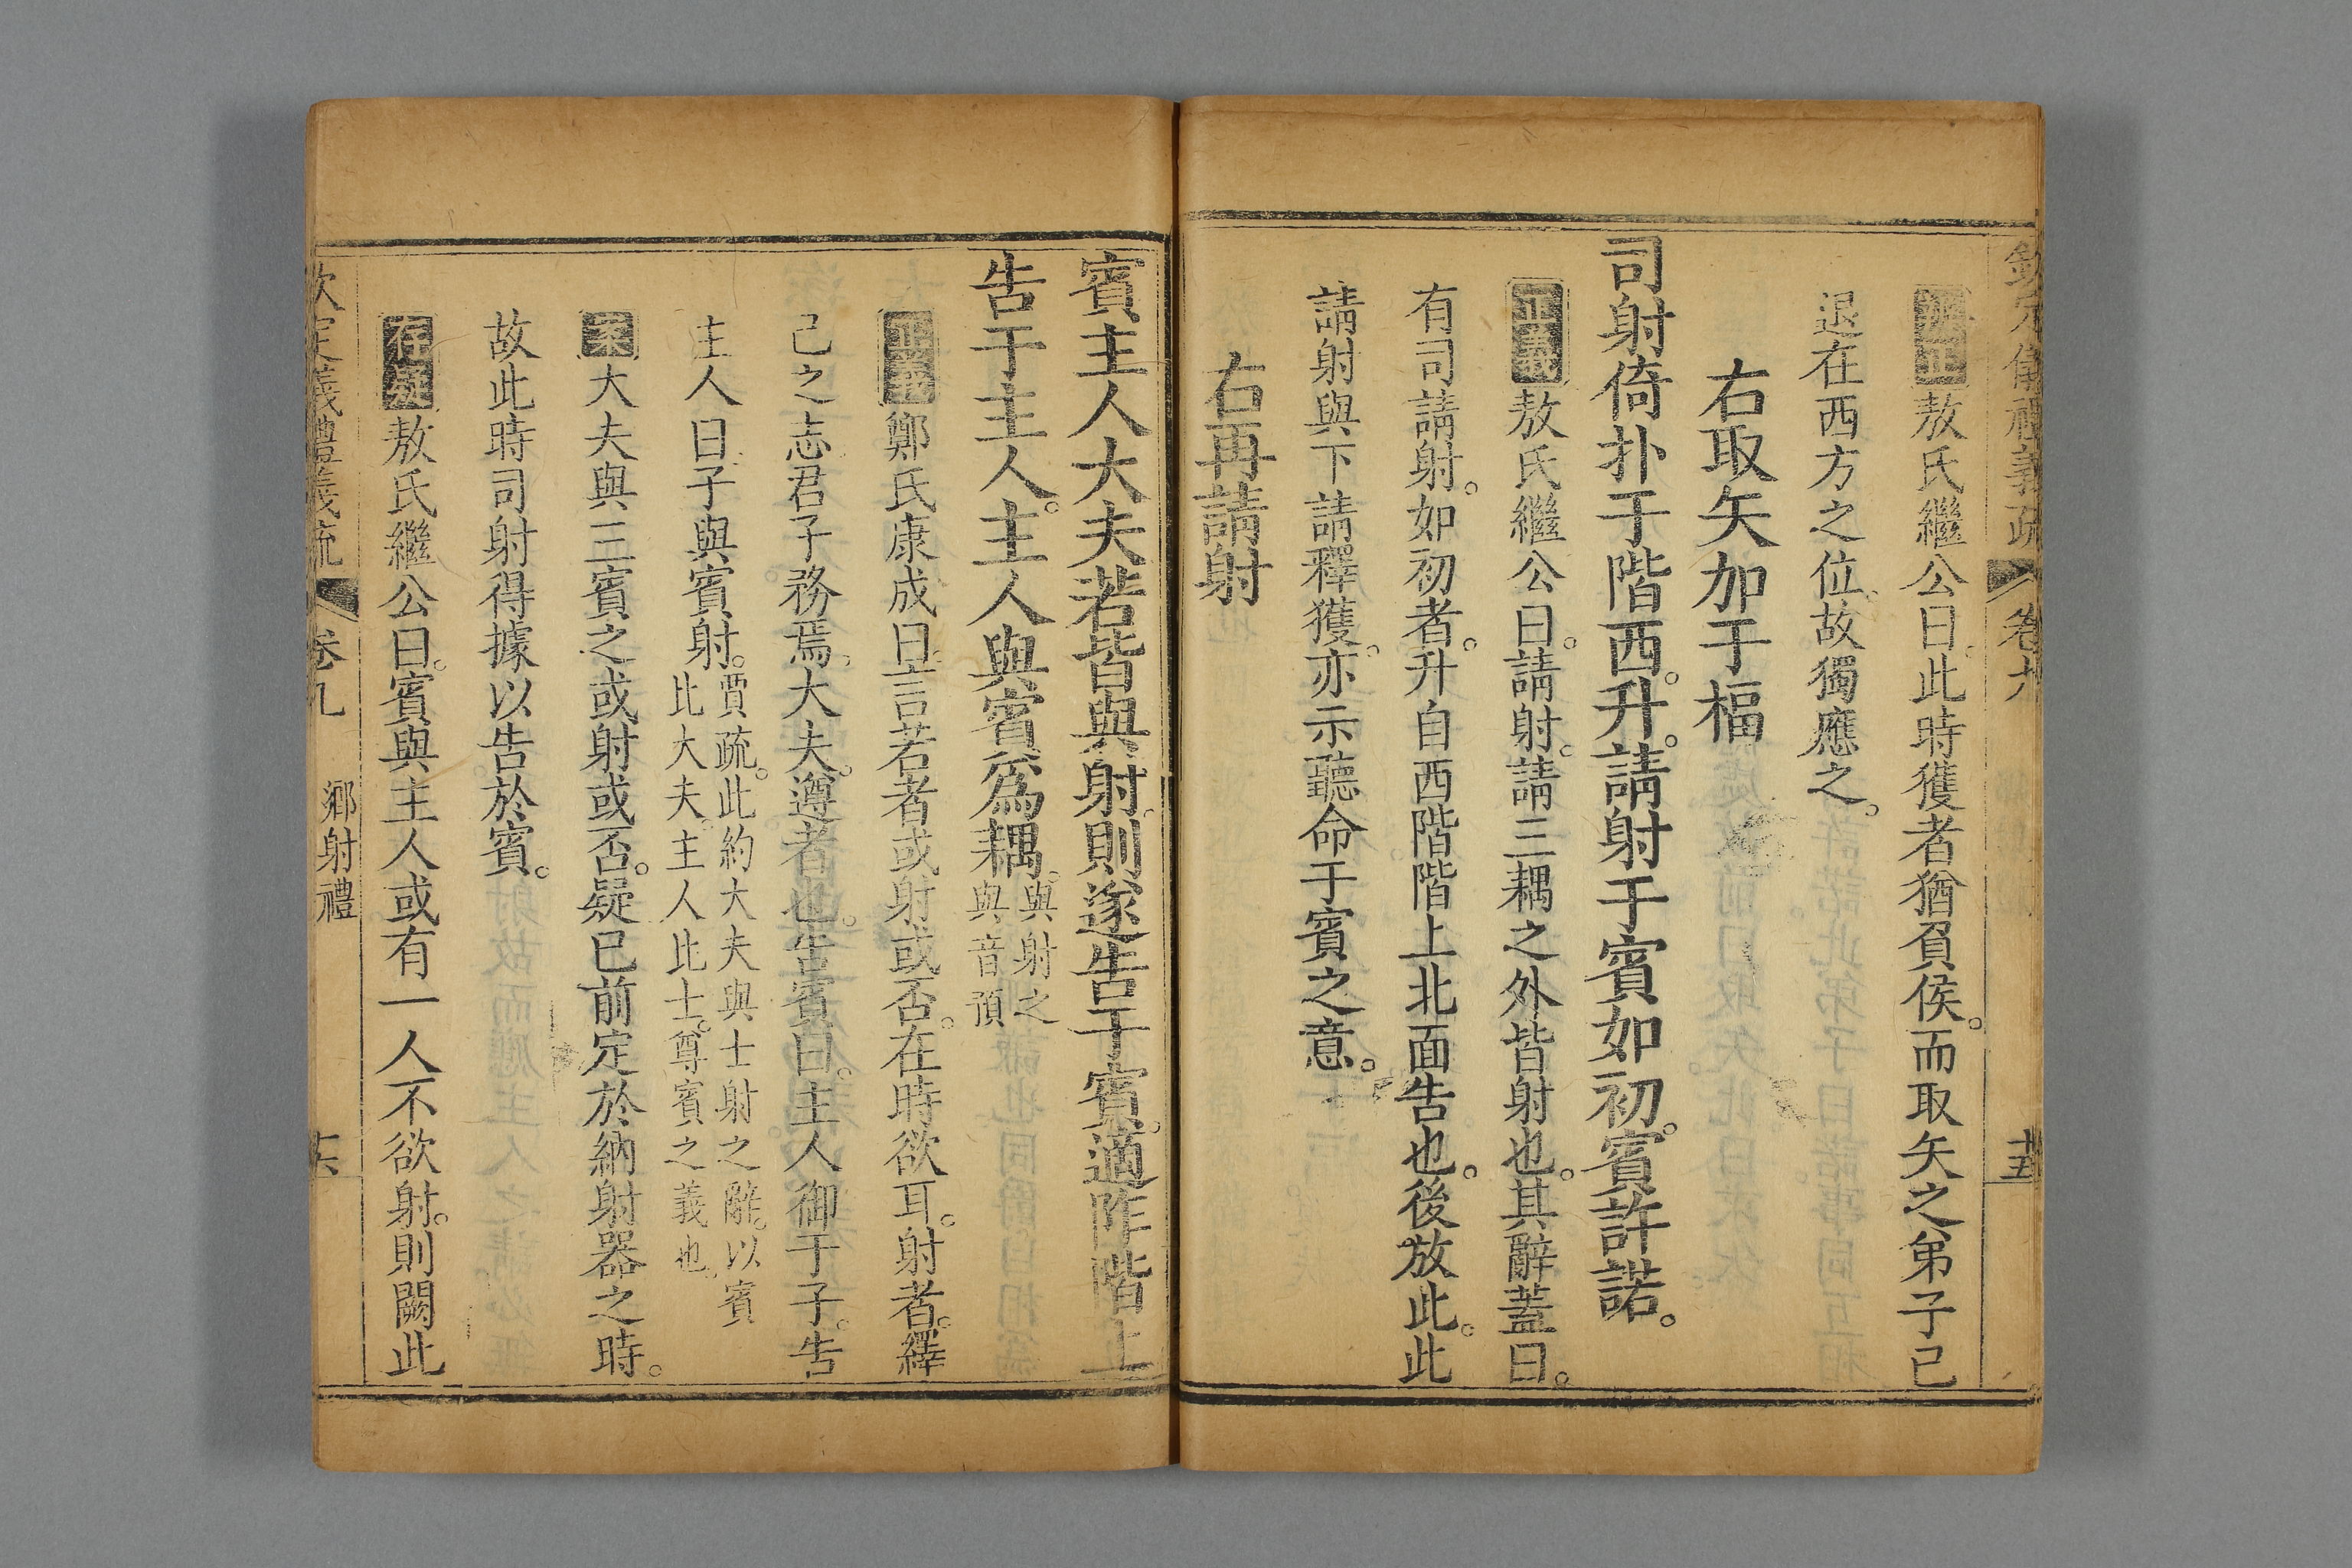 欽定儀禮義疏 卷九 十五
敖氏繼公曰此時獲者猶負侯而取矢之弟子已
退在西方之位故獨應之
右取矢加于楅
司射倚扑于階西升請射于賓如初賓許諾
正義敖氏繼公曰請射請三耦之外皆射也其辭蓋曰
有司請射如初者升自西階階上北面告也後放此此
請射與下請釋獲亦示聽命于賓之意
右再請射
賓主人大夫若皆與射則遂告于賓適阼階上
告于主人主人與賓爲耦與射之與音預
正義鄭氏康成曰言若者或射或否在時欲耳射者繹
己之志君子務焉大夫遵者也告賓曰主人御于子告
主人曰子與賓射賈疏此約大夫與士射之辭以賓比大夫主人比士尊賓之義也
案大夫與三賓之或射或否疑已前定於納射器之時
故此時司射得據以告於賓
存疑敖氏繼公曰賓與主人或有一人不欲射則闕此
欽定義禮義疏 卷九 鄉射禮